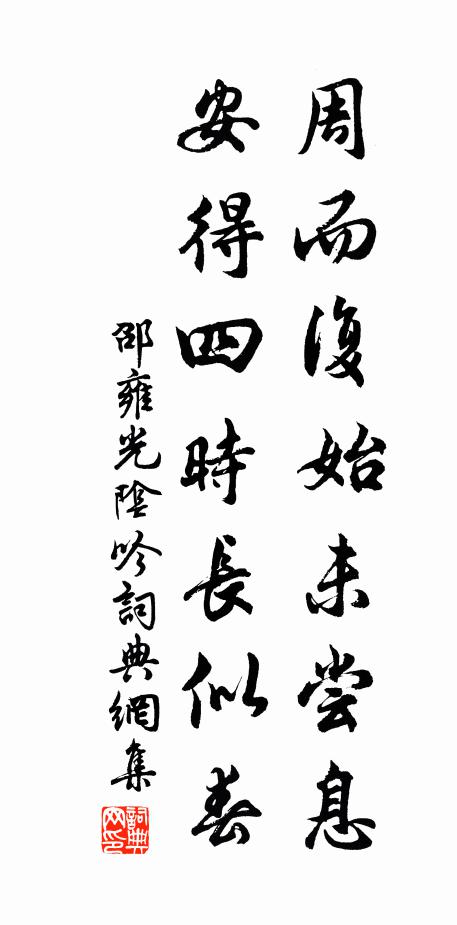 周而復始未尝息
安得四時長似春
邵雍光陰吟詞典網集
詞典网印